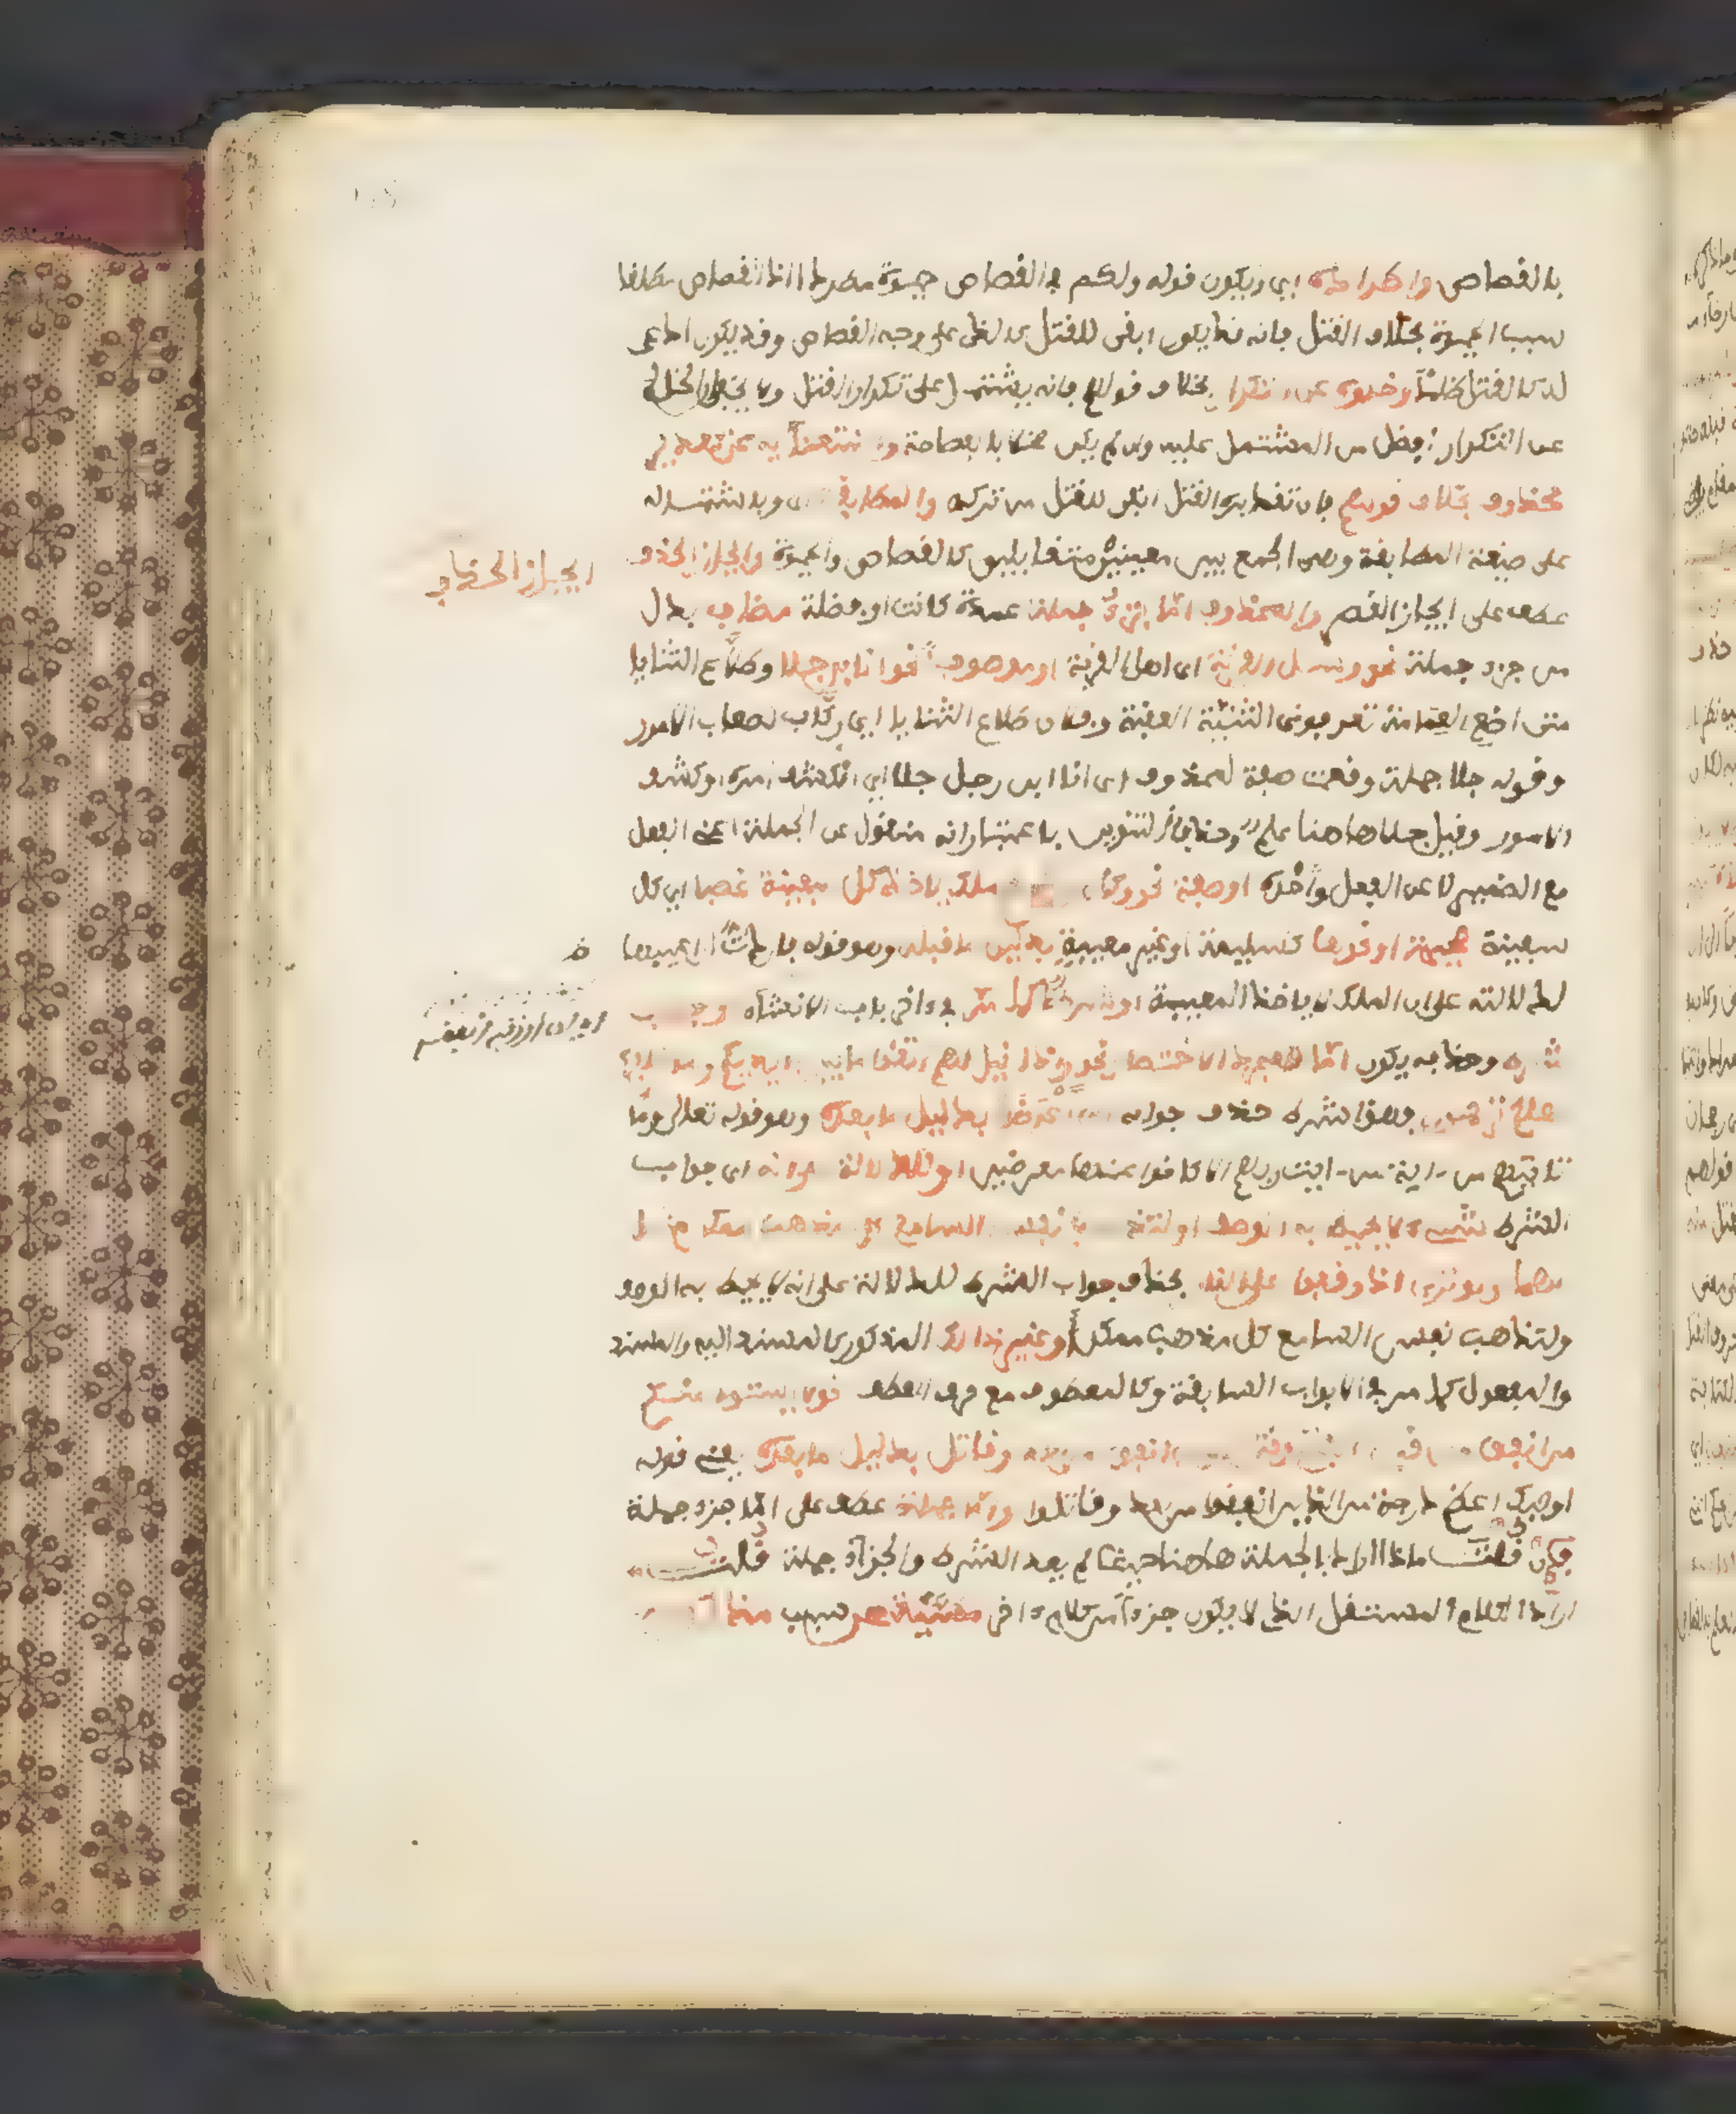 بالقصاص واطراده اي ويكون قوله ولكم في القصاص حيوة مطردا اذ القصاص مطلقا
سبب الحيوة بخلاف القتل فانه قد يكون انفى للقتل كالذي على وجه القصاص وقد يكون ادعى
له كالقتل ظلما وخلوه عن التكرار بخلاف قولهم فانه يشتمل على تكرار القتل ولا يخفى ان الخالي
عن التكرار افضل من المشتمل عليه وان لم يكن مخلا بالفصاحة واستغنائه عن تقدير
محذوف بخلاف قولهم فان تقديره القتل انفى للقتل من تركه والمطابقة اي وباشتماله
على صنعة المطابقة وهي الجمع بين معنيين متقابلين كالقصاص والحيوة وايجاز الحذف
عطف على ايجاز القصر والمحذوف اما جزء جملة عمدة كانت او فضلة مضاف بدل
من جزء جملة نحو وسئل القرية اي اهل القرية او موصوف نحو انا ابن جلا وطلاع الثنايا
متى اضع العمامة تعرفوني الثنية العقبة وفلان طلاع الثنايا اي ركاب لصعاب الامور
وقوله جلا جملة وقعت صفة لمحذوف اي انا ابن رجل جلا اي انكشف امره او كشف
الامور وقيل جلا هاهنا علم وحذف التنوين باعتبار انه منقول عن الجملة اعني الفعل
مع الضمير لا عن الفعل وحده او صفة نحو وكان ملك ياخذ كل سفينة غصبا اي كل
سفينة صحيحة او نحوها كسليمة او غير معيبة بدليل ما قبله وهو قوله فاردت ان اعيبها
لدلالته على ان الملك لا ياخذ المعيبة او شرط كما مر في اخر باب الانشاء وجواب
شرط وحذفه يكون اما لمجرد الاختصار نحو واذا قيل لهم اتقوا ما بين ايديكم وما خلفكم
لعلكم ترحمون فهذا شرط حذف جوابه اعرضوا بدليل ما بعده وهو قوله تعالى وما
تاتيهم من اية من ايت ربهم الا كانوا عنها معرضين او للدلالة على انه اي جواب
الشرط شيء لا يحيط به الوصف او لتذهب نفس السامع كل مذهب ممكن مثالهما
ولو ترى اذ وقفوا على النار بحذف جواب الشرط للدلالة على انه لا يحيط به الوصف
ولتذهب نفس السامع كل مذهب ممكن او غير ذلك المذكور كالمسند اليه والمسند
والمفعول كما مر في الابواب السابقة وكالمعطوف مع حرف العطف نحو لا يستوي منكم
من انفق من قبل الفتح اي ومن انفق من بعده وقاتل بدليل ما بعده يعني قوله
اوليك اعظم درجة من الذين انفقوا من بعد وقاتلوا واما جملة عطف على اما جزء جملة
فان قلت ماذا اراد بالجملة هاهنا حيث لم يعد الشرط والجزاء جملة قلت
اراد الكلام المستقل الذي لا يكون جزءا من كلام اخر مسببة عن سبب مذكور
ايجاز الحذف